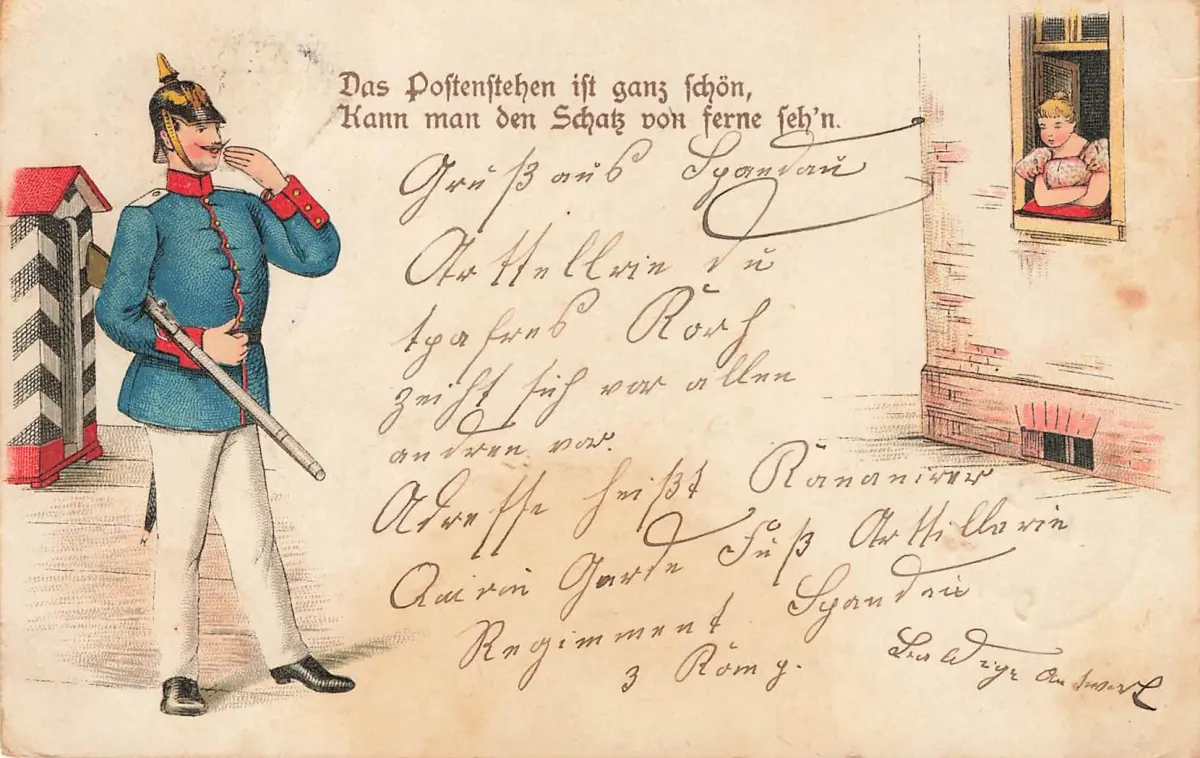 Das Postenstehen ist ganz schön,
Kann man den Schatz von ferne seh'n.
Gruß aus Spandau
Arttellrie du
Korh
zeiht sich vor allen
andren vor.
Adresse heißt Kananirer
Garde Fuß Arttillerie
Regimment Spandau
3 Komp.
Baldige Antwort